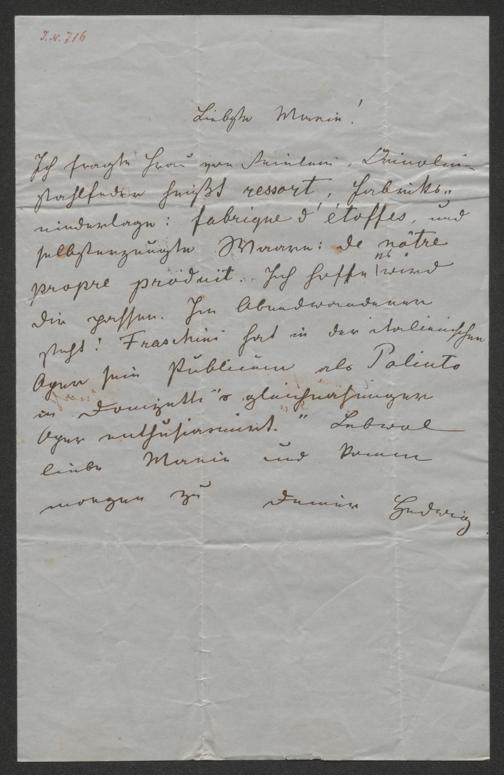 I. N. 716
Liebste Marie!
Ich fragte Frau von Crinolin
stahlfeder heißt ressort, Fabriks-
niederlage: fabrique d'étoffes, und
selbsterzeugte Waare: de nôtre
propre produit. Ich hoffe es wird
dir passen. Im Abendwanderer
steht: Fraschini hat in der italienischen
Oper sein Publicum als Poliuto
in Donizetti's gleichnahmiger
Oper enthusiasmirt." Lebwol
liebe Marie und komm
morgen zu Deiner Hedwig